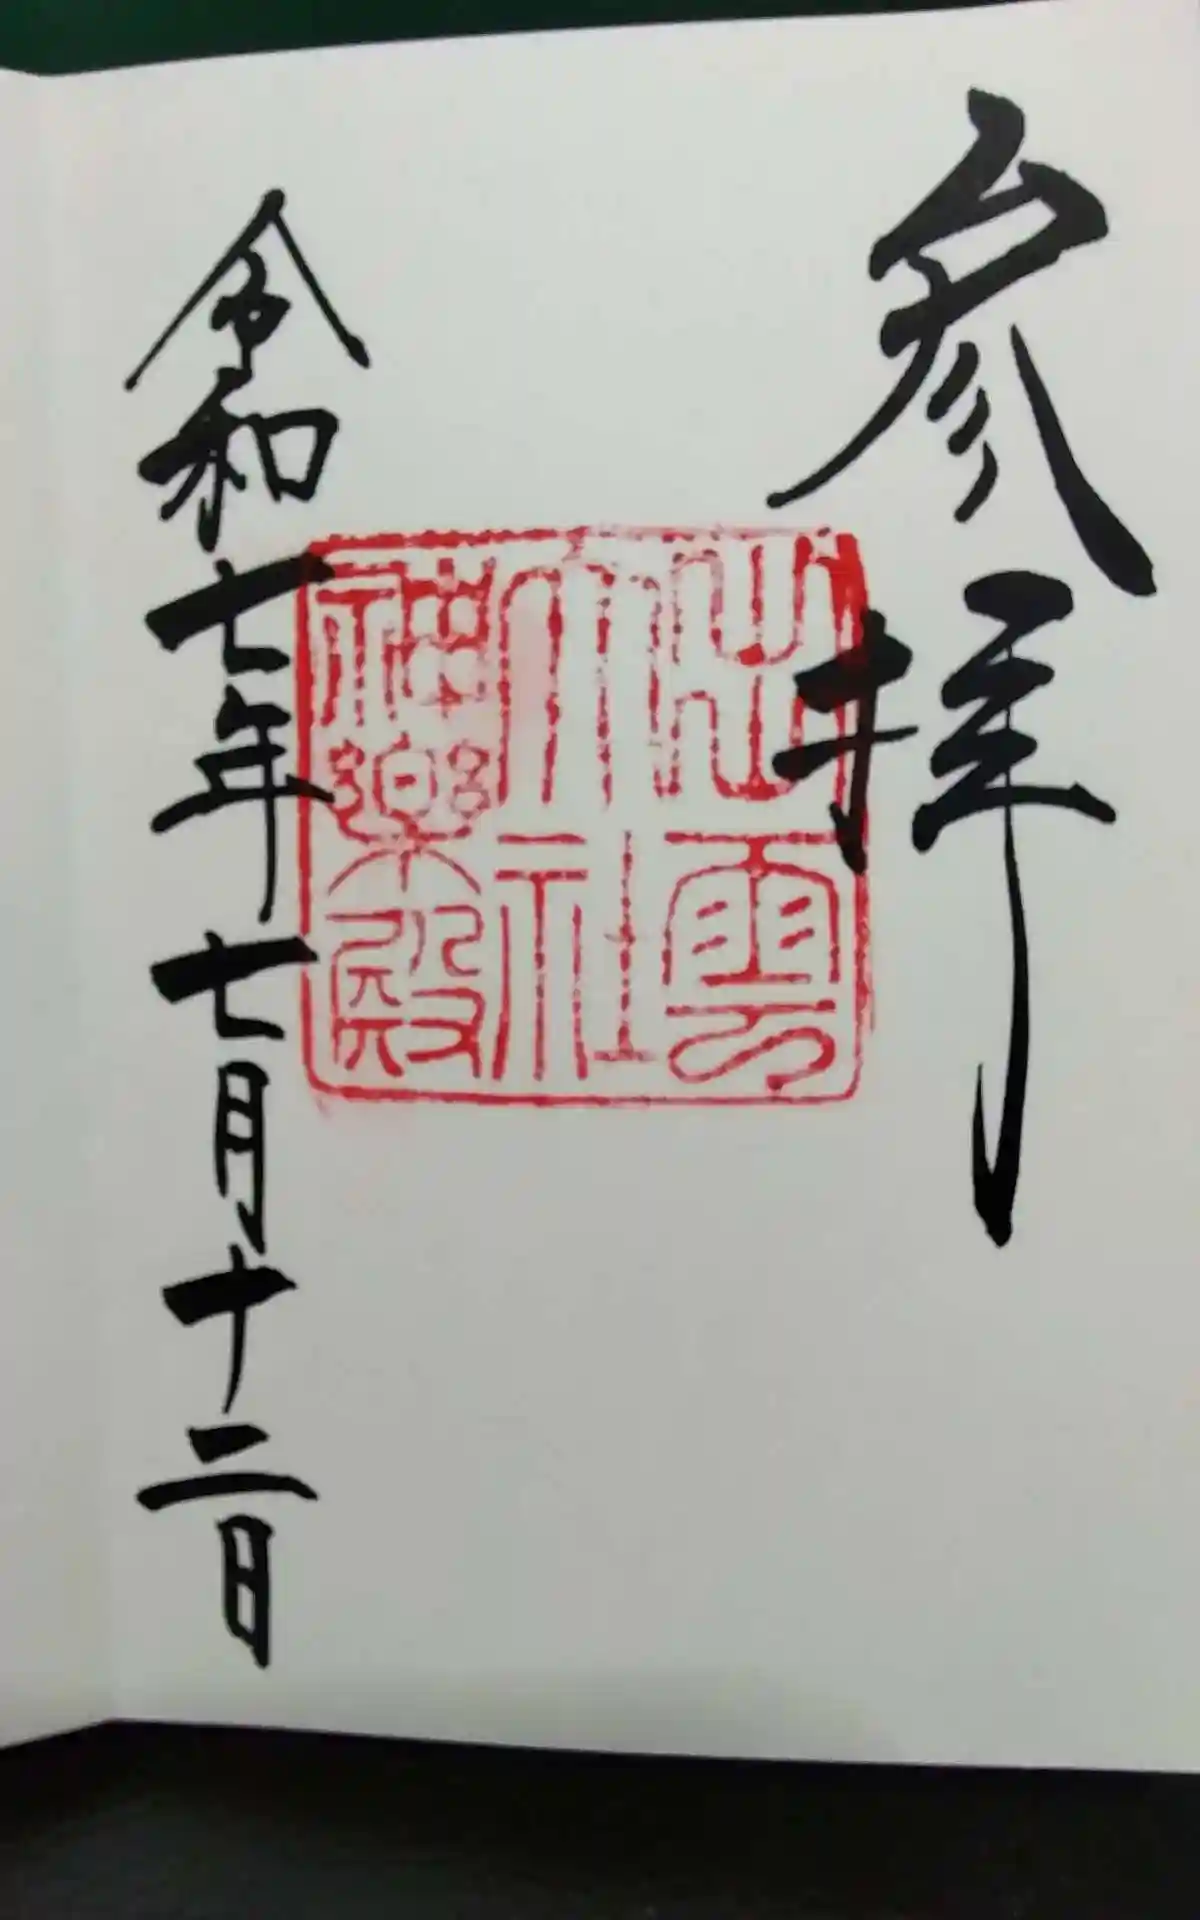 参拝
出雲
大社
神樂殿
令和七年七月十二日